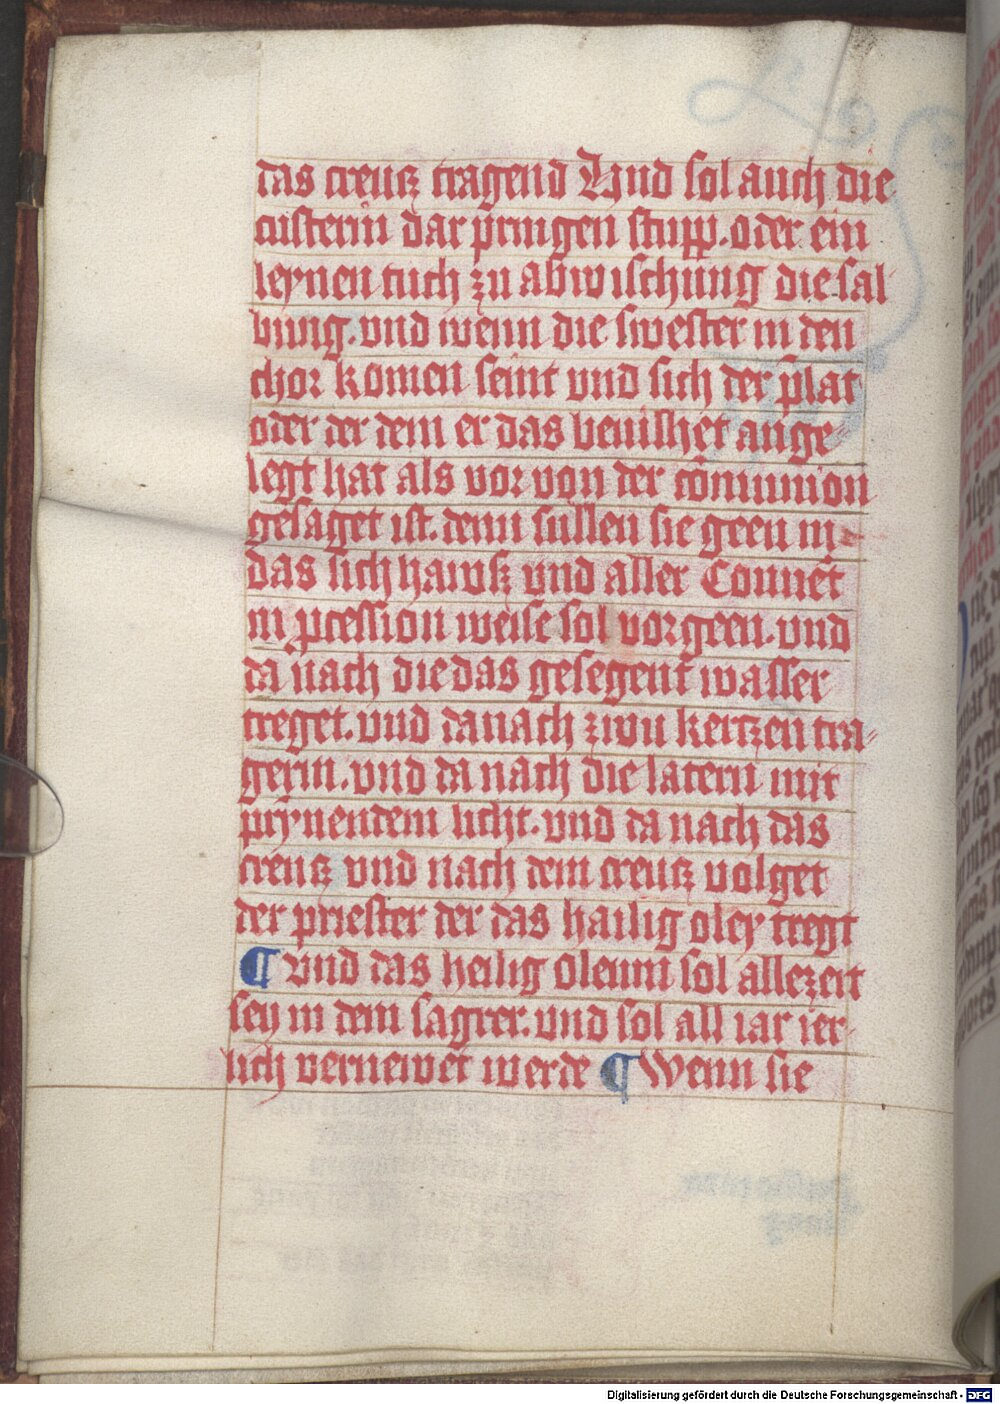 das creutz tragend Und sol auch die
custerin dar pringen stupp. oder ein
leynen tuch zu abwischung die sal
bung. vnd wenn die swester in den
chor komen seint vnd sich der plat
oder der dem er das ange-
legt hat als vor von der comunion
gesaget ist. denn sullen sie geen in
das sich hawsz vnd aller Convet
in pcession weise sol vor geen. vnd
da nach die das gesegent wasser
treget. vnd danach zwu kertzen tra-
gerin. vnd da nach die latern mit
prynendem licht. vnd da nach das
creutz vnd nach dem creutz volget
der priester der das hailig oley tregt
¶ Vnd das heilig Oleum sol allezeit
sey in dem sagrer. vnd sol all iar ier-
lich vernewet werde ¶ Wenn sie
Digitalisierung gefördert durch die Deutsche Forschungsgemeinschaft - DFG